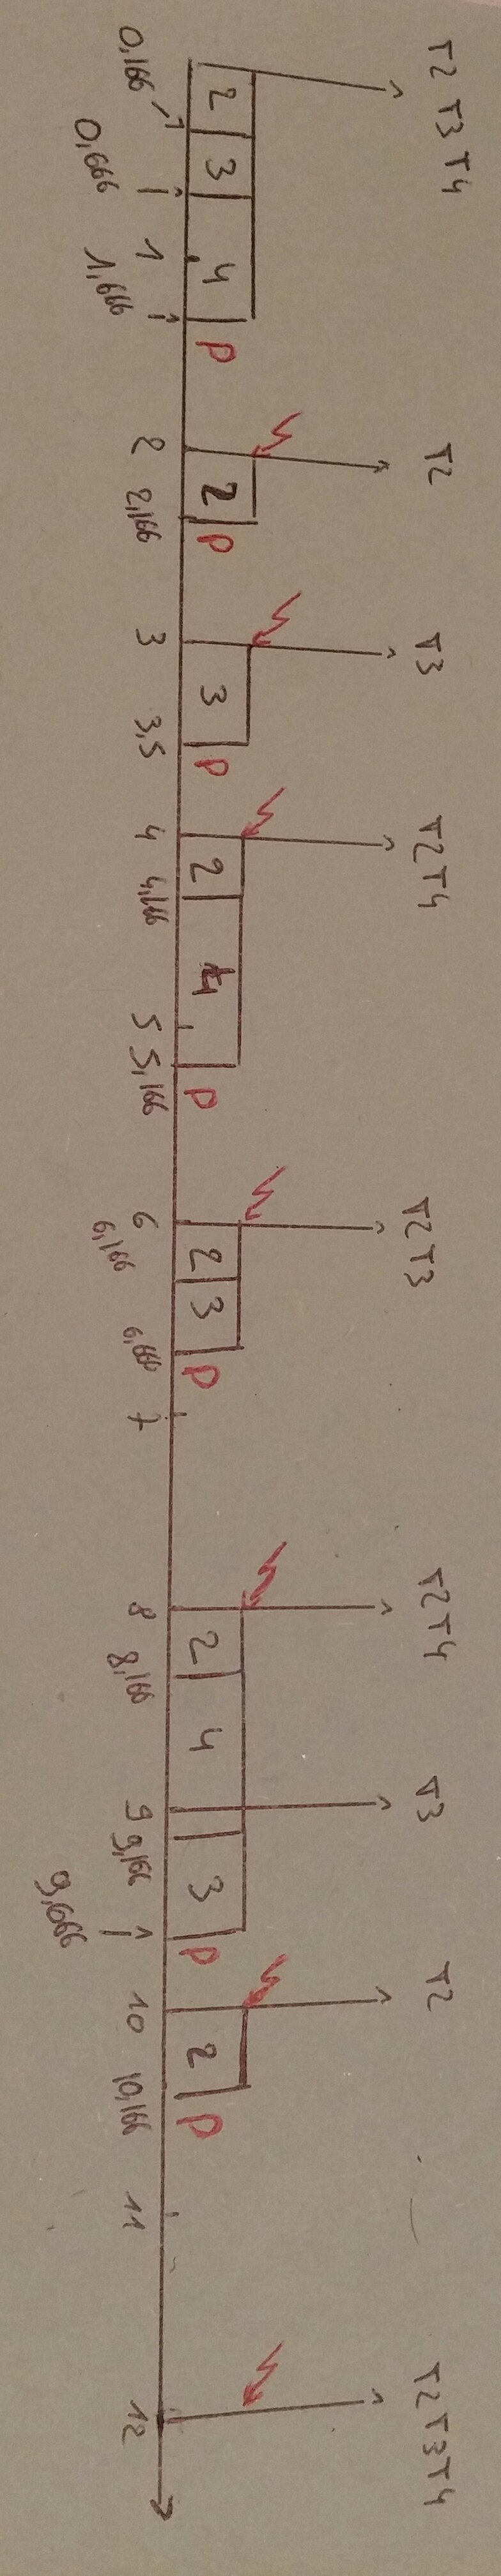 T2 T3 T4 T2 T3 T2 T4 T2 T3 T2 T4 T3 T2 T2 T3 T4
2 3 4 P 2 P 3 P 2 4 P 2 3 P 2 4 3 P 2 P
0,166 0,666 1 1,666 2 2,166 3 3,5 4 4,166 5 5,166 6 6,166 6,666 7 8 8,166 9 9,166 9,666 10 10,166 11 12